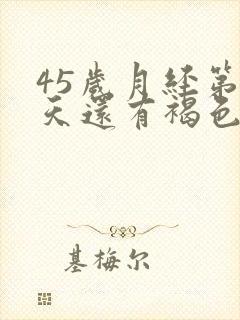 45歲月经第
天還有褐色
基梅尔